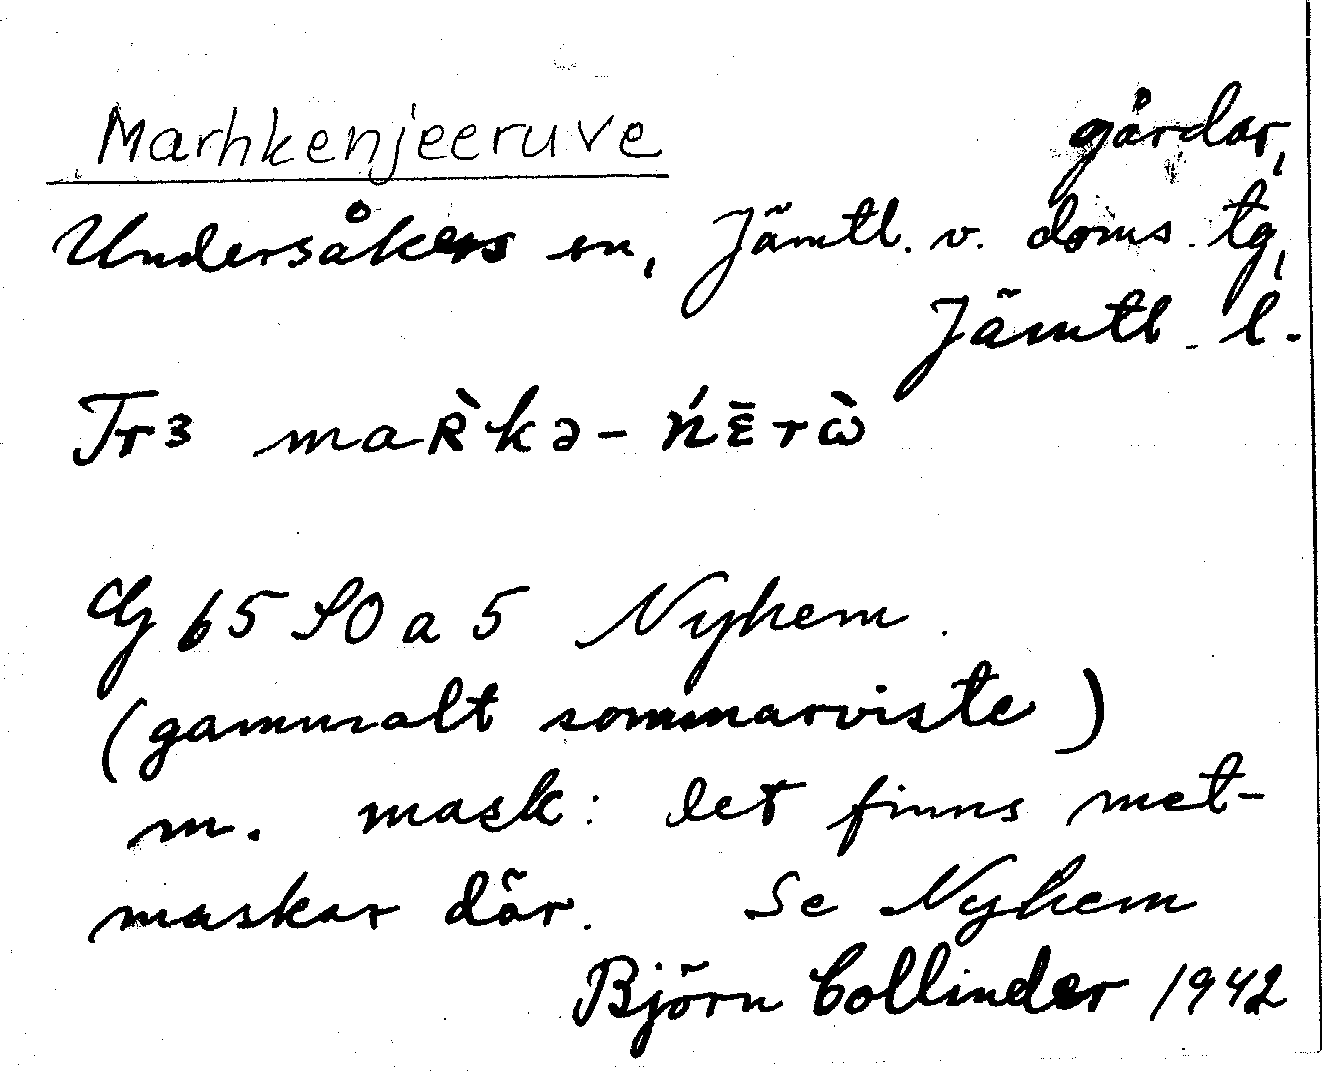 Marhkenjeeruve gårdar,
Undersåkers sn, Jämtl. v. doms. tg,
Jämtl. l.
Tr3 maʀ̀kə-ńε̄rὼ
G 65 SO a 5 Nyhem.
(gammalt sommarviste)
m. mask: det finns met-
maskar där. Se Nyhem
Björn Collinder 1942